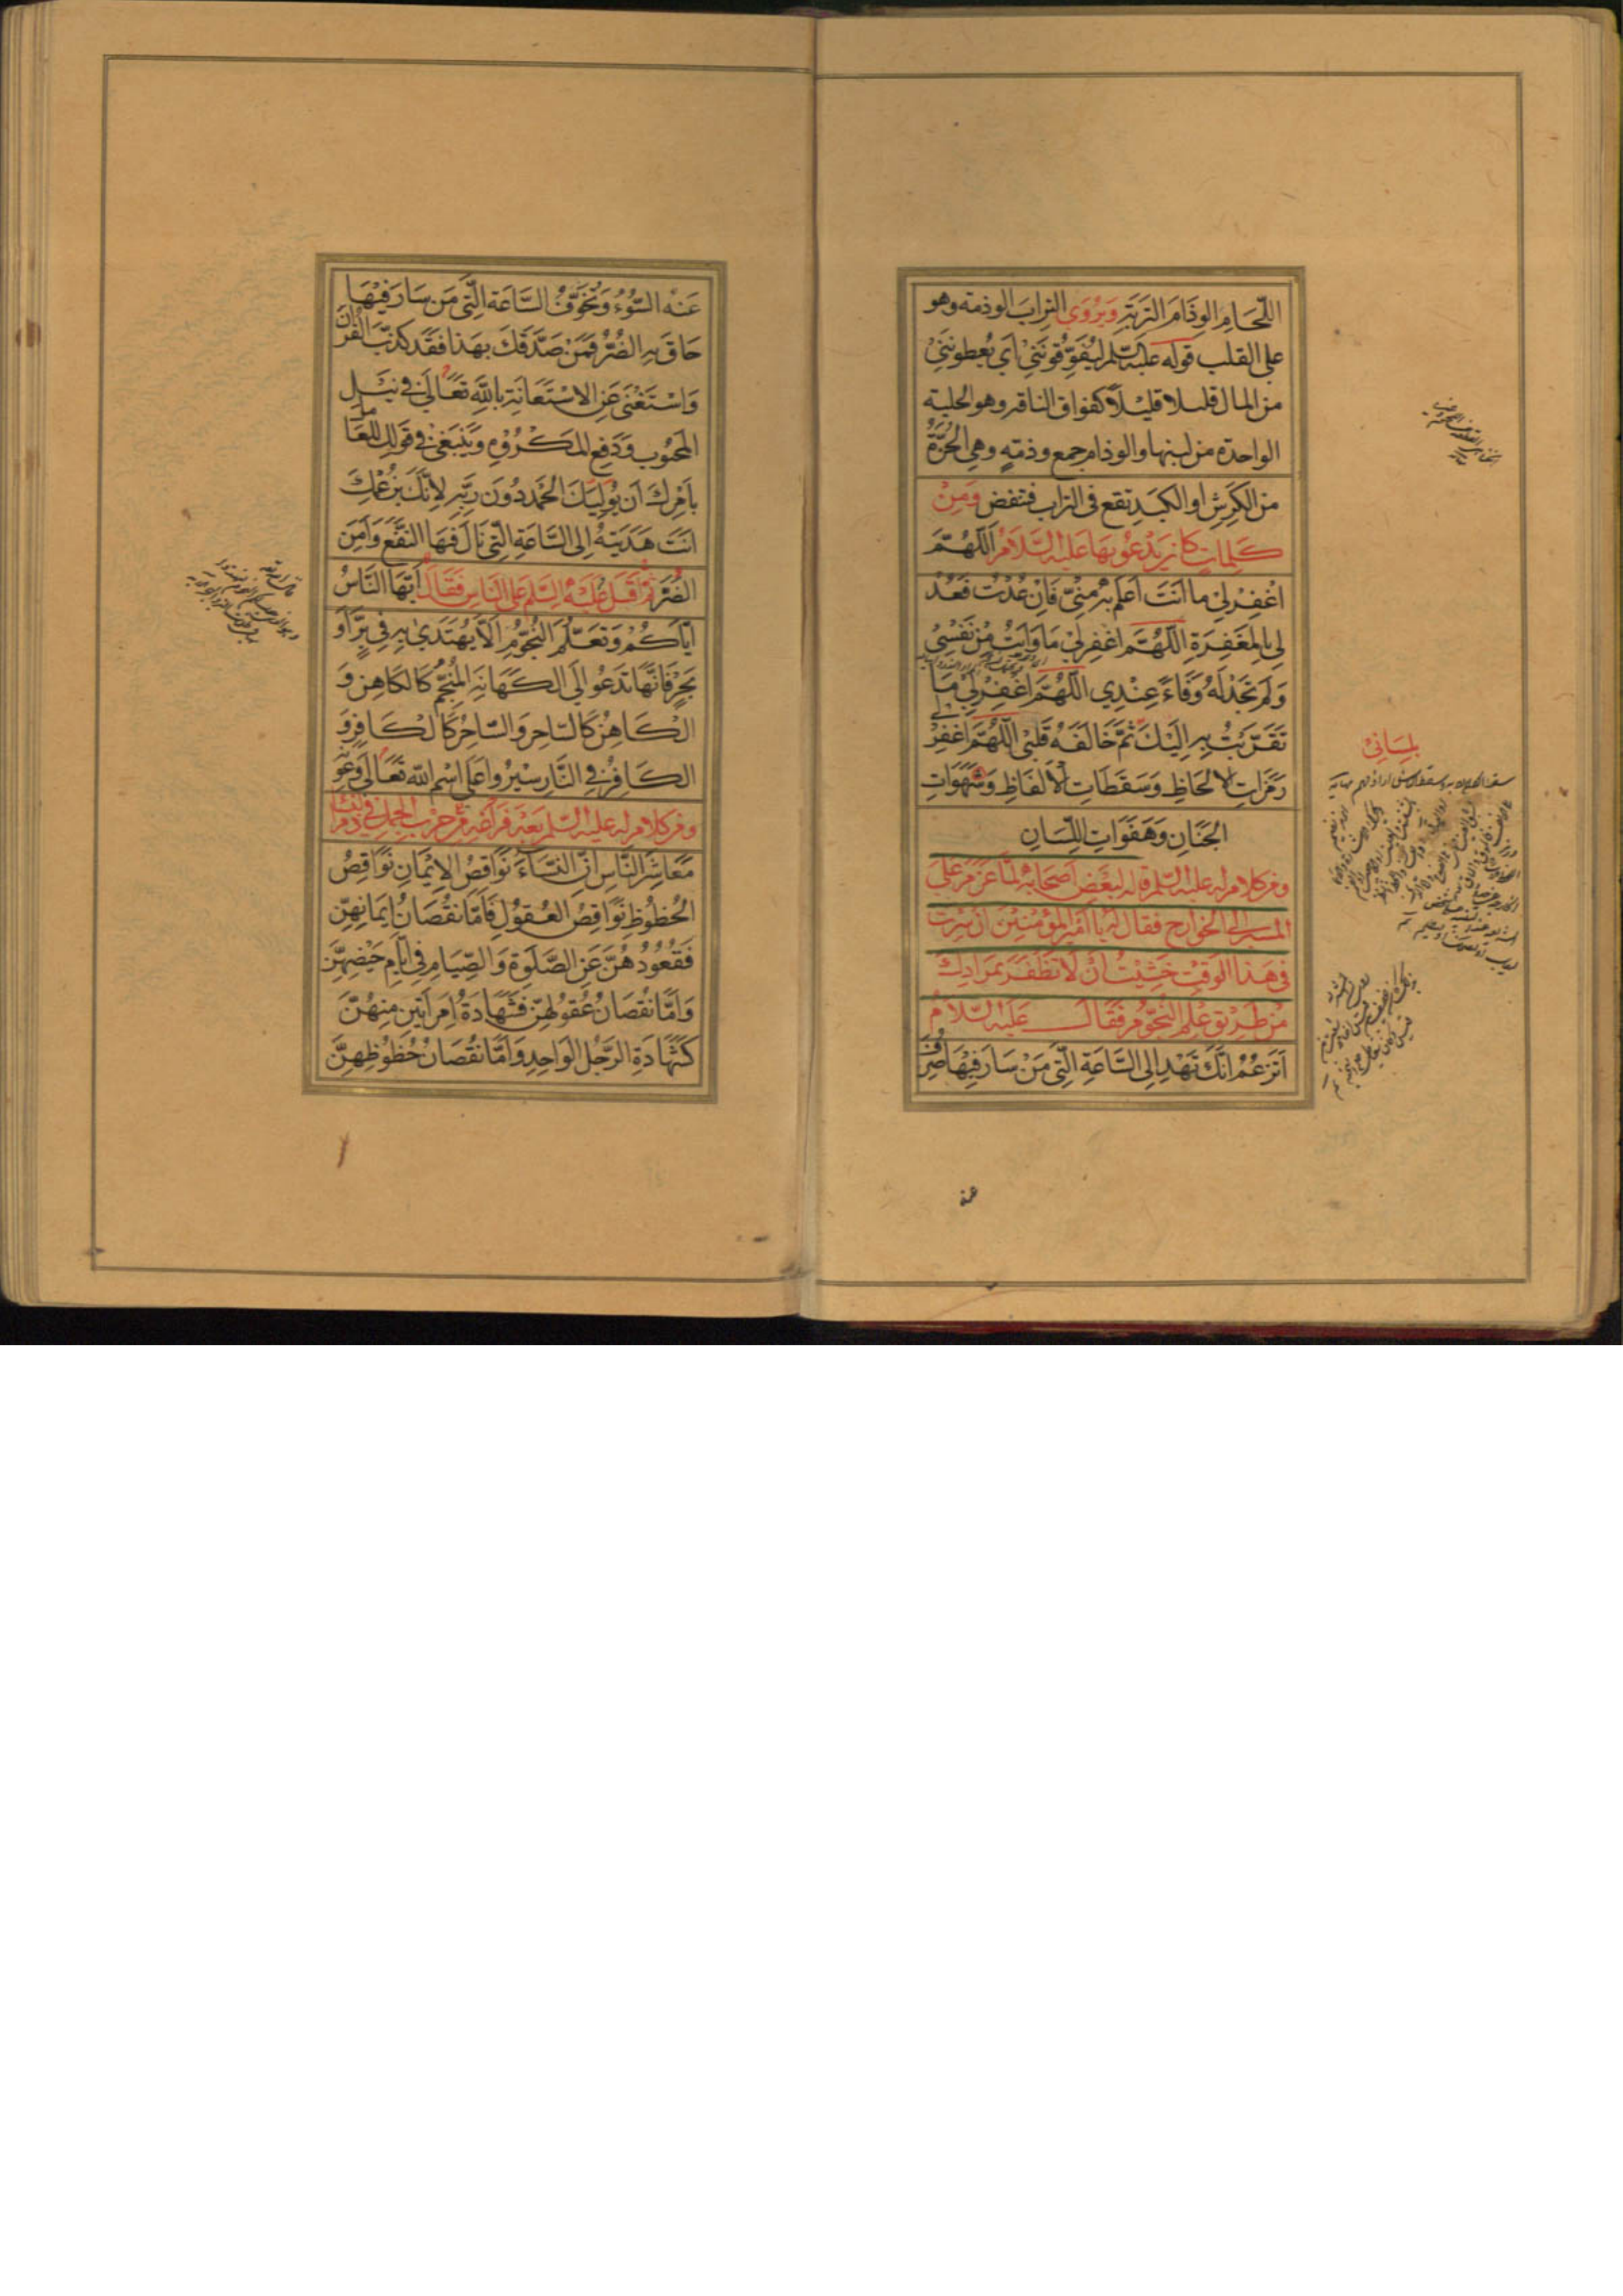 اللّحَامِ الوِذَامَ التَّرِبَةَ وَيُرْوَى التراب الوذمة وهو
على القلب قوله عليه السلم ليُفَوِّقُونَنِي اَي يُعطونني
من المال قليلا قليلاً كفواق الناقة وهو الحلبة
الواحدة من لبنها والوذام جمع وذمةٍ وهي الحُزَّةُ
من الكَرِشِ او الكَبِدِ تقع في التراب فتنفض وَمِنْ
كَلِماتٍ كَانَ يَدْعُو بِهَا عَلَيْهِ السَّلَامُ اَللّهُمَّ
اغْفِرْلِي ما اَنتَ اَعلَمُ بِهِ مِنّي فَاِنْ عُدْتُ فَعُدْ
لِي بِالمَغْفِرَةِ اللّهُمَّ اغْفِرلِي مَا وَاَيْتُ مِنْ نَفْسِي
وَلَم تَجِدْ لَهُ وَفَاءً عِنْدِي اللّهُمَّ اغْفِرْلِي مَا
تَقَرَّبْتُ بِهِ اِلَيْكَ ثُمَّ خَالَفَهُ قَلْبِي اللّهُمَّ اغْفِرْ لي
رَمَزَاتِ الاَلحَاظِ وَسَقَطَاتِ الاَلفَاظِ وَشَهَوَاتِ
الجَنَانِ وَهَفَوَاتِ اللِّسَانِ
ومن كلام له عليه السلم قاله لبعض اَصحَابِه لمَّا عَزَمَ عَلى
المسير الى الخوارج فقال له يا اَمير المُؤمنين ان سِرْتَ
في هَذا الوَقْتِ خَشِيْتُ اَنْ لَا تَظْفَرَ بِمُرَادِكَ
مِنْ طَرِيْقِ عِلمِ النُّجُومِ فَقَالَ عَلَيْهِ السَّلَامُ
اَتَزْعُمُ اَنَّكَ تَهْدِي اِلى السَّاعَةِ الَّتِي مَنْ سَارَ فِيْهَا صُرِفَ
بِلِسَانِي
عنه
عَنْهُ السُّوْءُ وَتُخَوِّفُ السَّاعَةَ الَّتِي مَن سَارَ فِيْهَا
حَاقَ بِهِ الضُّرُّ فَمَنْ صَدَّقَكَ بِهَذا فَقَد كَذَّبَ القُرْانَ
وَاسْتَغْنَى عَنِ الاِسْتَعَانَةِ بِاللّهِ تَعَالَى في نَيْلِ
المَحْبُوبِ وَدَفعِ المَكْرُوْهِ وَيَنْبَغِي في قَولِكَ لِلعَامِلِ
بِاَمْرِكَ اَن يُوْلِيَكَ الحَمْدَ دُونَ رَبِّهِ لِاَنَّكَ بِزَعْمِكَ
اَنتَ هَدَيْتَهُ اِلى السَّاعَةِ الَّتي نَالَ فيهَا النَّفْعَ وَاَمِنَ
الضُّرَّ ثُمَّ اَقْبَلَ عَلَيْهِ السَّلم عَلى النَّاسِ فَقَالَ اَيُّهَا النَّاسُ
اِيَّاكُمْ وَتَعَلُّمَ النُّجُوْمِ اِلَّا يُهْتَدَى بِهِ فِي بَرٍّ اَو
بَحْرٍ فَاِنَّهَا تَدعُو اِلى الكَهَانَةِ المُنَجِّمُ كَالكَاهِنِ وَ
الكَاهِنُ كَالسَّاحِرِ وَالسَّاحِرُ كَالكَافِرِ وَ
الكَافِرُ في النَّارِ سِيْرُوا عَلى اسْمِ اللّه تَعَالى وَعَوْنِهِ
ومن كلام له عليه السلم بعد فَرَاغِهِ مِنْ حَرْبِ الجَمَلِ في ذَمِّ النِّسَاء
مَعَاشِرَ النَّاسِ اِنَّ النِّسَاءَ نَوَاقِصُ الاِيْمَانِ نَوَاقِصُ
الحُظُوْظِ نَوَاقِصُ العُقُوْلِ فَاَمَّا نُقْصَانُ اِيمَانِهِنَّ
فَقُعُوْدُهُنَّ عَنِ الصَّلوةِ وَالصِّيَامِ في اَيَّامِ حَيْضِهِنَّ
وَاَمَّا نُقْصَانُ عُقُولِهِنَّ فَشَهَادَةُ امرَاَتَينِ مِنْهُنَّ
كَشَهَادَةِ الرَّجُلِ الوَاحِدِ وَاَمَّا نُقْصَانُ حُظُوْظِهِنَّ